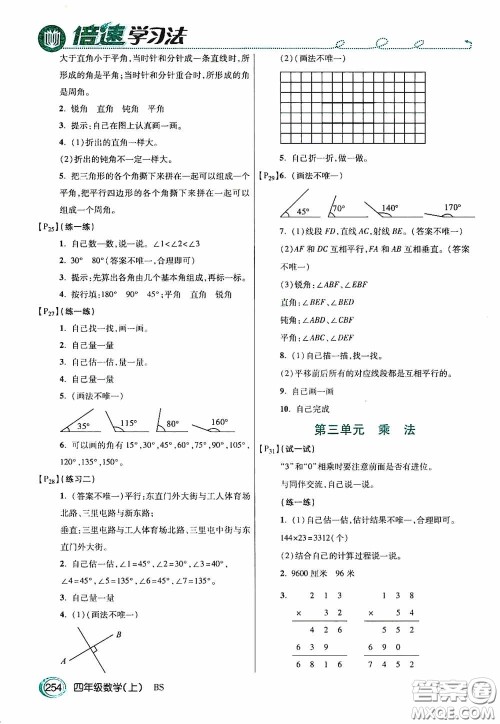 倍速学习法
大于直角小于平角,当时针和分针成一条直线时,所
形成的角是平角;当时针和分针重合时,所形成的角
是周角。
2. 锐角 直角 钝角 平角
3. 提示:自己在图上认真画一画。
4. (1)折出的直角一样大。
(2)折出的钝角不一定一样大。
5. 把三角形的各个角撕下来拼在一起可以组成一个
平角,把平行四边形的各个角撕下来拼在一起可以
组成一个周角。
【P25】(练一练)
1. 自己数一数,说一说。∠1<∠2<∠3
2. 30° 80°(答案不唯一,合理即可)
3. 提示:先算出各角由几个基本角组成,再标一标。
4. 按行填:180° 90° 45° 平角 直角 锐角
【P27】(练一练)
1. 自己找一找,画一画。
2. 自己量一量
3. 自己估一估,量一量。
4. 自己量一量
5. (画法不唯一)
35° 115° 80° 160°
6. 可以画的角有15°,30°,45°,60°,75°,90°,105°,
120°,135°,150°,165°,180°。
【P28】(练习二)
1. (答案不唯一)平行:东直门外大街与工人体育场
北路、三里屯路与新东路;
垂直:三里屯路与工人体育场北路、三里屯路与东直
门外大街。
2. 自己估一估,∠1=45°,∠2=45°,∠3=90°,
∠4=45°,∠5=135°,∠6=45°,∠7=135°。
3. 自己量一量
4. (1)(画法不唯一)
A B
(2)(画法不唯一)
5. 自己折一折,做一做。
【P29】6. (画法不唯一)
45° 70° 140° 170°
7. (1)线段FD,直线AC,射线BE。(答案不唯一)
(2)AF和DC互相平行,FA和AB互相垂直。(答案
不唯一)
(3)锐角:∠ABF、∠EBF
直角:∠BEF、∠BED
钝角:∠ABD、∠DBC
平角:∠ABC、∠FED
8. (1)自己描一描,找一找。
(2)平移前后所有的对应线段都是互相平行的。
9. 自己画一画
10. 自己完成
第三单元 乘 法
【P31】(试一试)
“3”和“0”相乘时要注意前面是否有进位。
与同伴交流,自己说一说。
(练一练)
1. (1)自己估一估,估计结果不唯一,合理即可。
144×23=3312(个)
(2)结合自己的计算过程说一说。
2. 9600厘米 96米
3. 2 1 3 1 3 8
× 3 2 × 5 4
4 2 6 5 5 2
6 3 9 6 9 0
6 8 1 6 7 4 5 2
254 四年级数学(上) BS